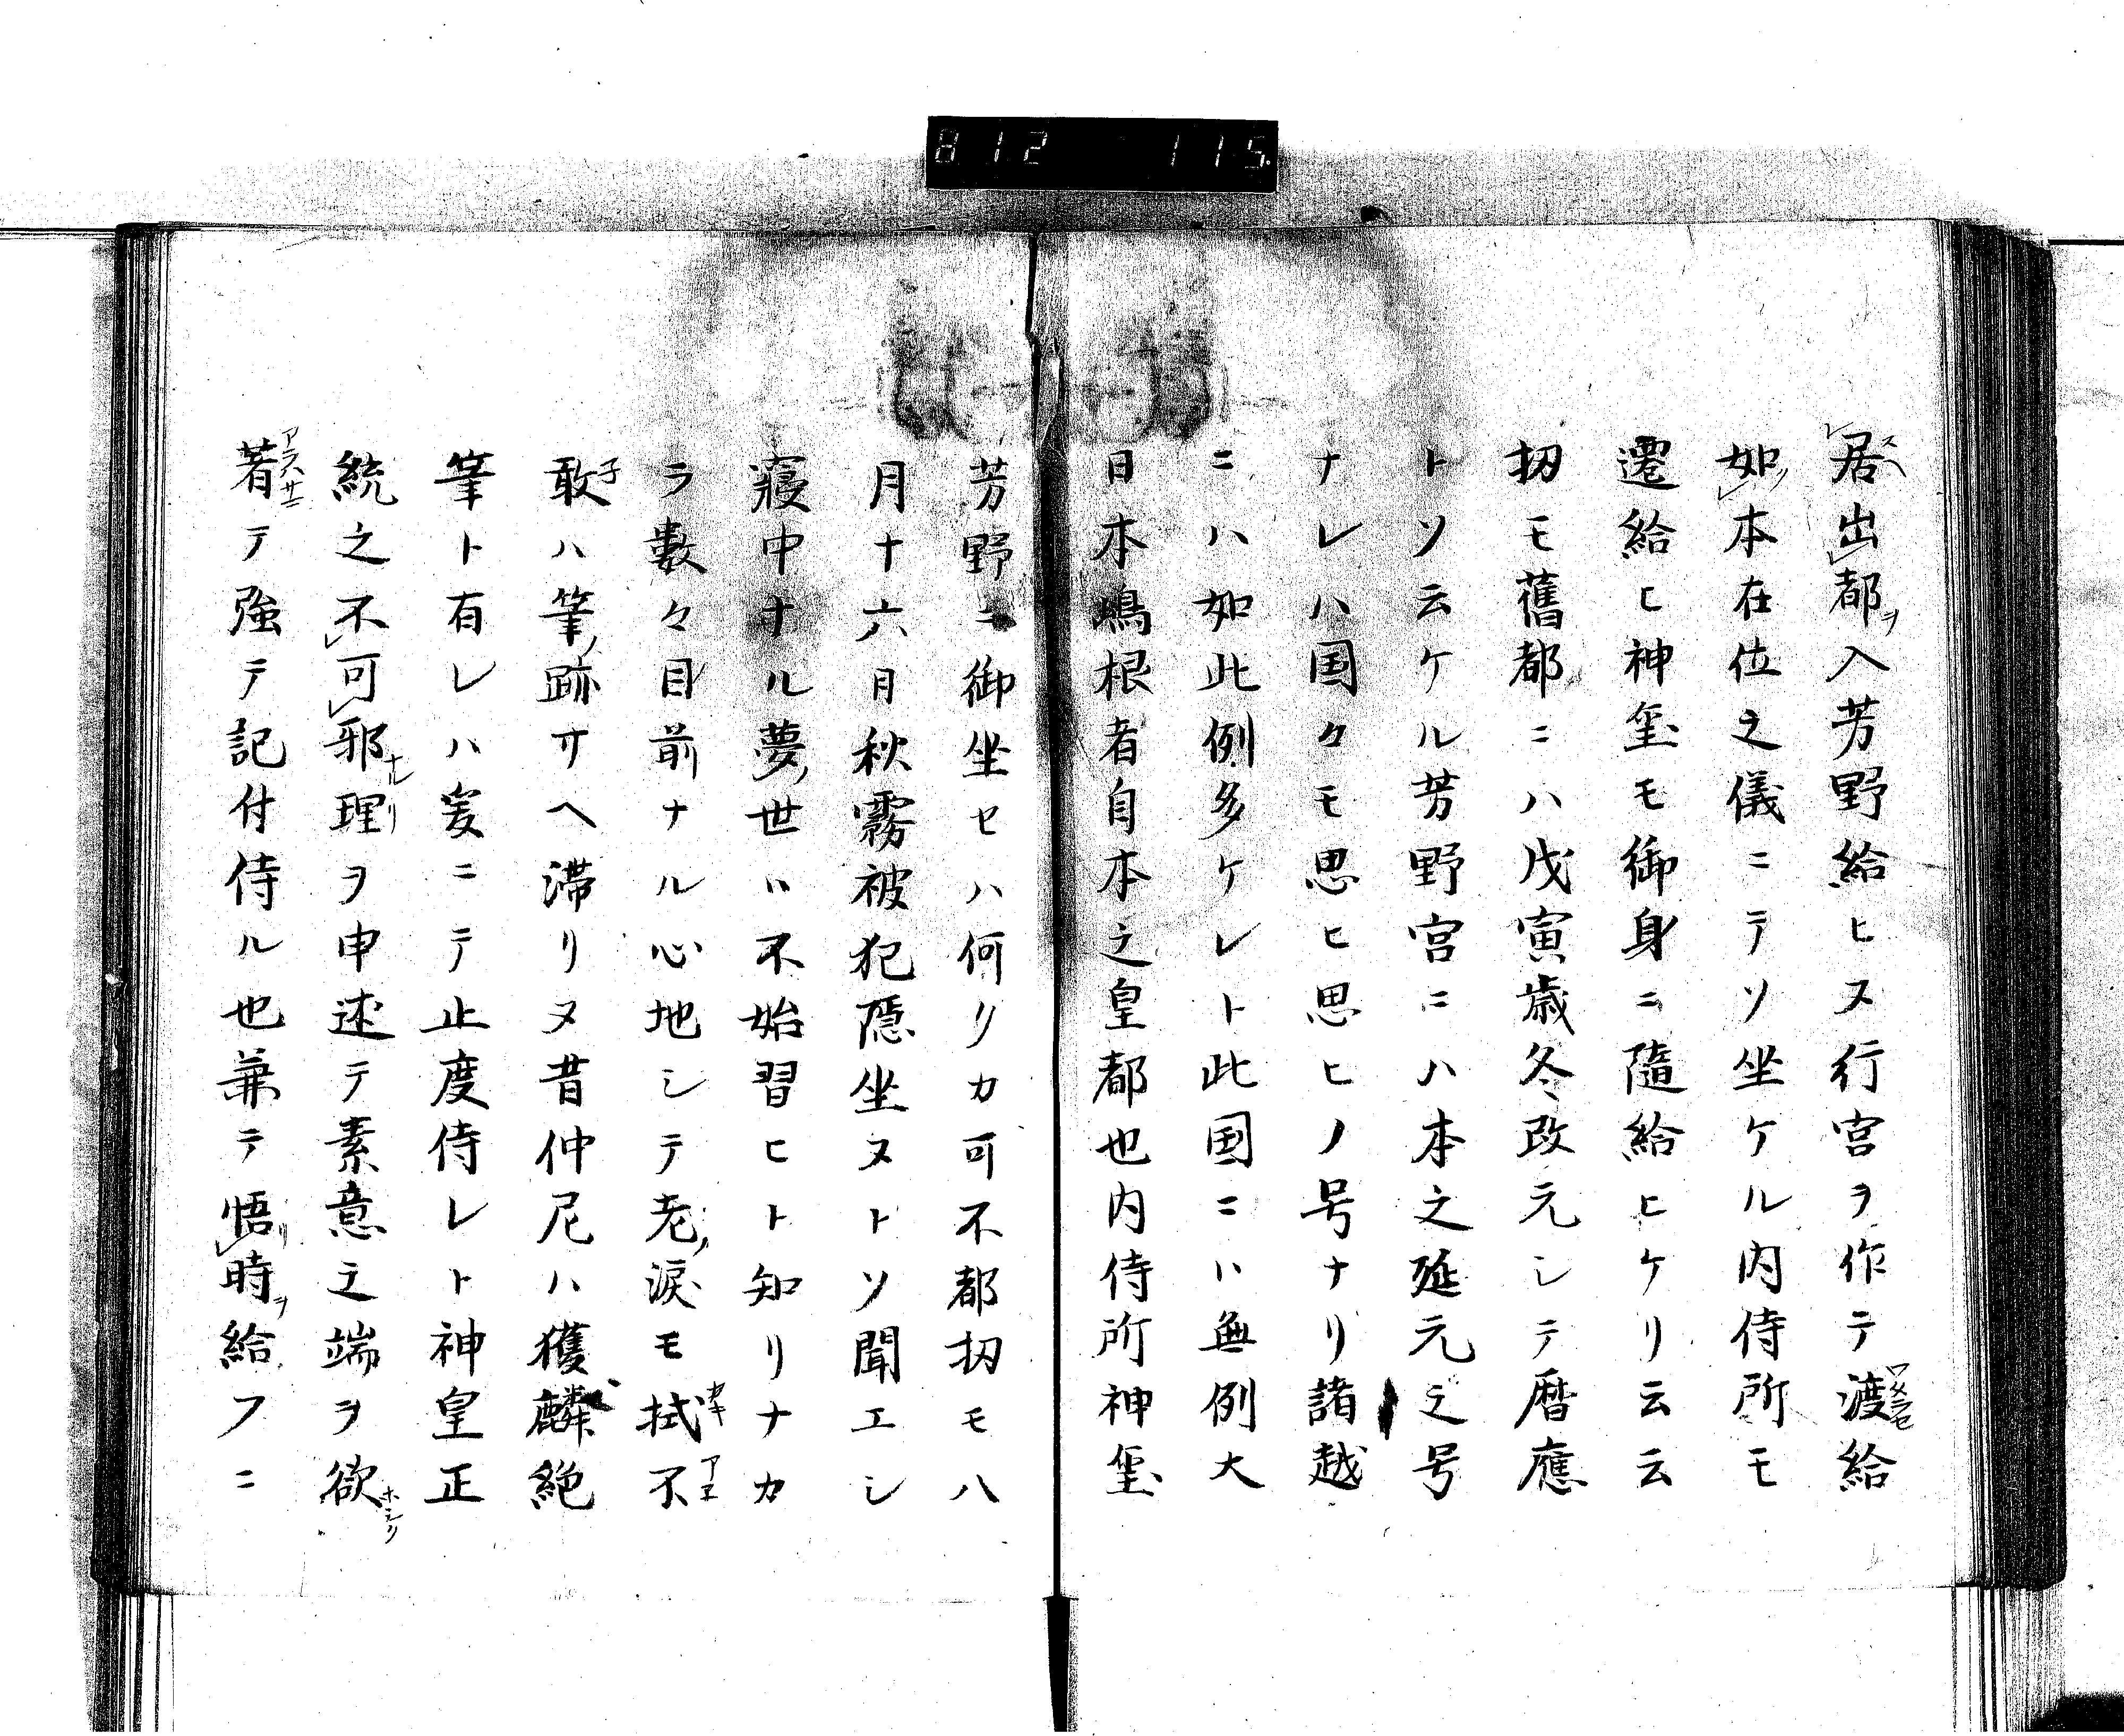 812 115
居出都ヲ入芳野給ヒヌ行宮ヲ作テ渡給
如本在位之儀ニテソ坐ケル内侍所モ
遷給ヒ神璽モ御身ニ隨給ヒケリ云云
扨モ舊都ニハ戊寅歳冬改元シテ暦應
トソ云ケル芳野宮ニハ本之延元之号
ナレハ国々モ思ヒ思ヒノ号ナリ諸越
ニハ如此例多ケレト此国ニハ無例大
日本嶋根者自本之皇都也内侍所神璽
芳野ニ御坐セハ何リカ可不都扨モ八
月十六日秋霧被犯隠坐ヌトソ聞エシ
寢中ナル夢ノ世ハ不始習ヒト知リナカ
ラ數々目前ナル心地シテ老ノ涙モ拭不
敢ハ筆ノ跡サヘ滞リヌ昔仲尼ハ獲麟絶
筆ト有レハ爰ニテ止度侍レト神皇正
統之不可邪ナル理リヲ申述テ素意之端ヲ欲
着テ強テ記付侍ル也兼テ悟リ時ヲ給フニ